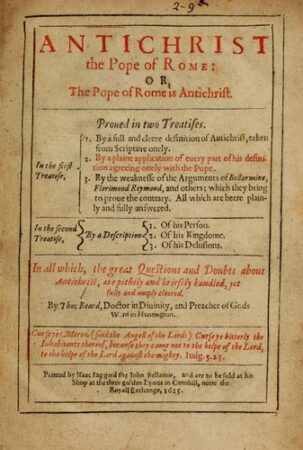 2-9
ANTICHRIST
the Pope of ROME:
OR,
The Pope of Rome is Antichrist.
Proued in two Treatises.
In the first Treatise,
1. By a full and cleere definition of Antichrist, taken
from Scripture onely.
2. By a plaine application of euery part of his defini-
tion agreeing onely with the Pope.
3. By the weaknesse of the Arguments of Bellermine,
Florimond Reymond, and others; which they bring
to proue the contrary. All which are heere plain-
ly and fully answered.
In the second Treatise,
By a Description
1. Of his Person.
2. Of his Kingdome.
3. Of his Delusions.
In all which, the great Questions and Doubts about
Antichrist, are pithily and briefely handled, yet
fully and amply cleered.
By Tho: Beard, Doctor in Diuinity, and Preacher of Gods
Word in Huntington.
Curse ye Meroz (said the Angell of the Lord:) Curse ye bitterly the
Inhabitants thereof, because they came not to the helpe of the Lord,
to the helpe of the Lord against the mighty. Iudg. 5.23.
Printed by Isaac Iaggard for Iohn Bellamie, and are to be sold at his
Shop at the three golden Lyons in Cornhill, neere the
Royall Exchange, 1625.